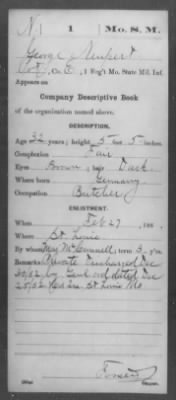 N 1 Mo. S. M.
George Neupert
Co. E, 1 Reg't Mo. State Mil. Inf.
Appears on
Company Descriptive Book
of the organization named above.
DESCRIPTION.
Age 32 years; height 5 feet 5 inches.
Complexion Fair
Eyes Brown; hair Dark
Where born Germany
Occupation Butcher
ENLISTMENT.
When Feb 27, 186
Where St Louis
By whom Maj McConnell; term 3 y'rs.
Remarks: Private Discharged Dec
30/62 by Genl ord dated Dec
25/62 St Louis Mo
Copyist.